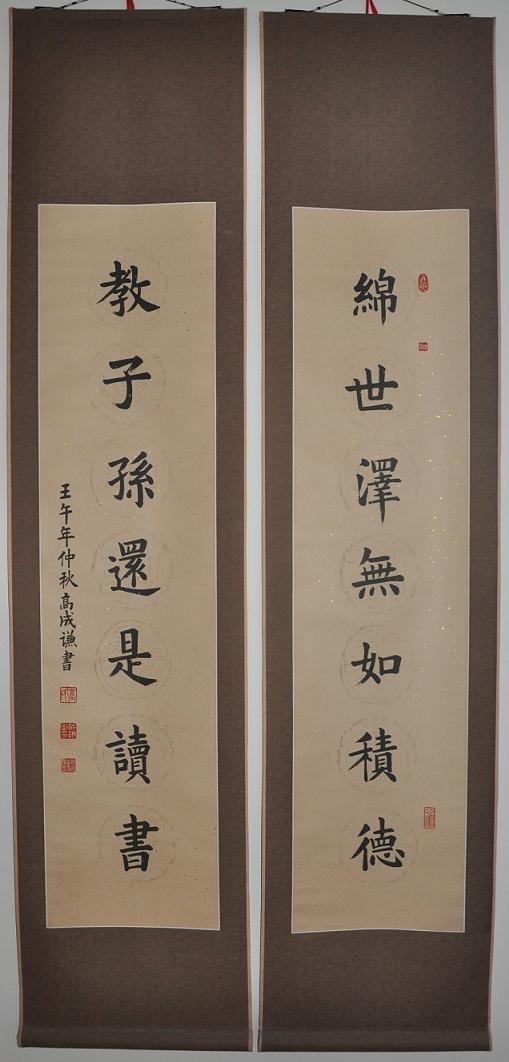 綿世澤無如積德
教子孫還是讀書
壬午年仲秋高成謙書